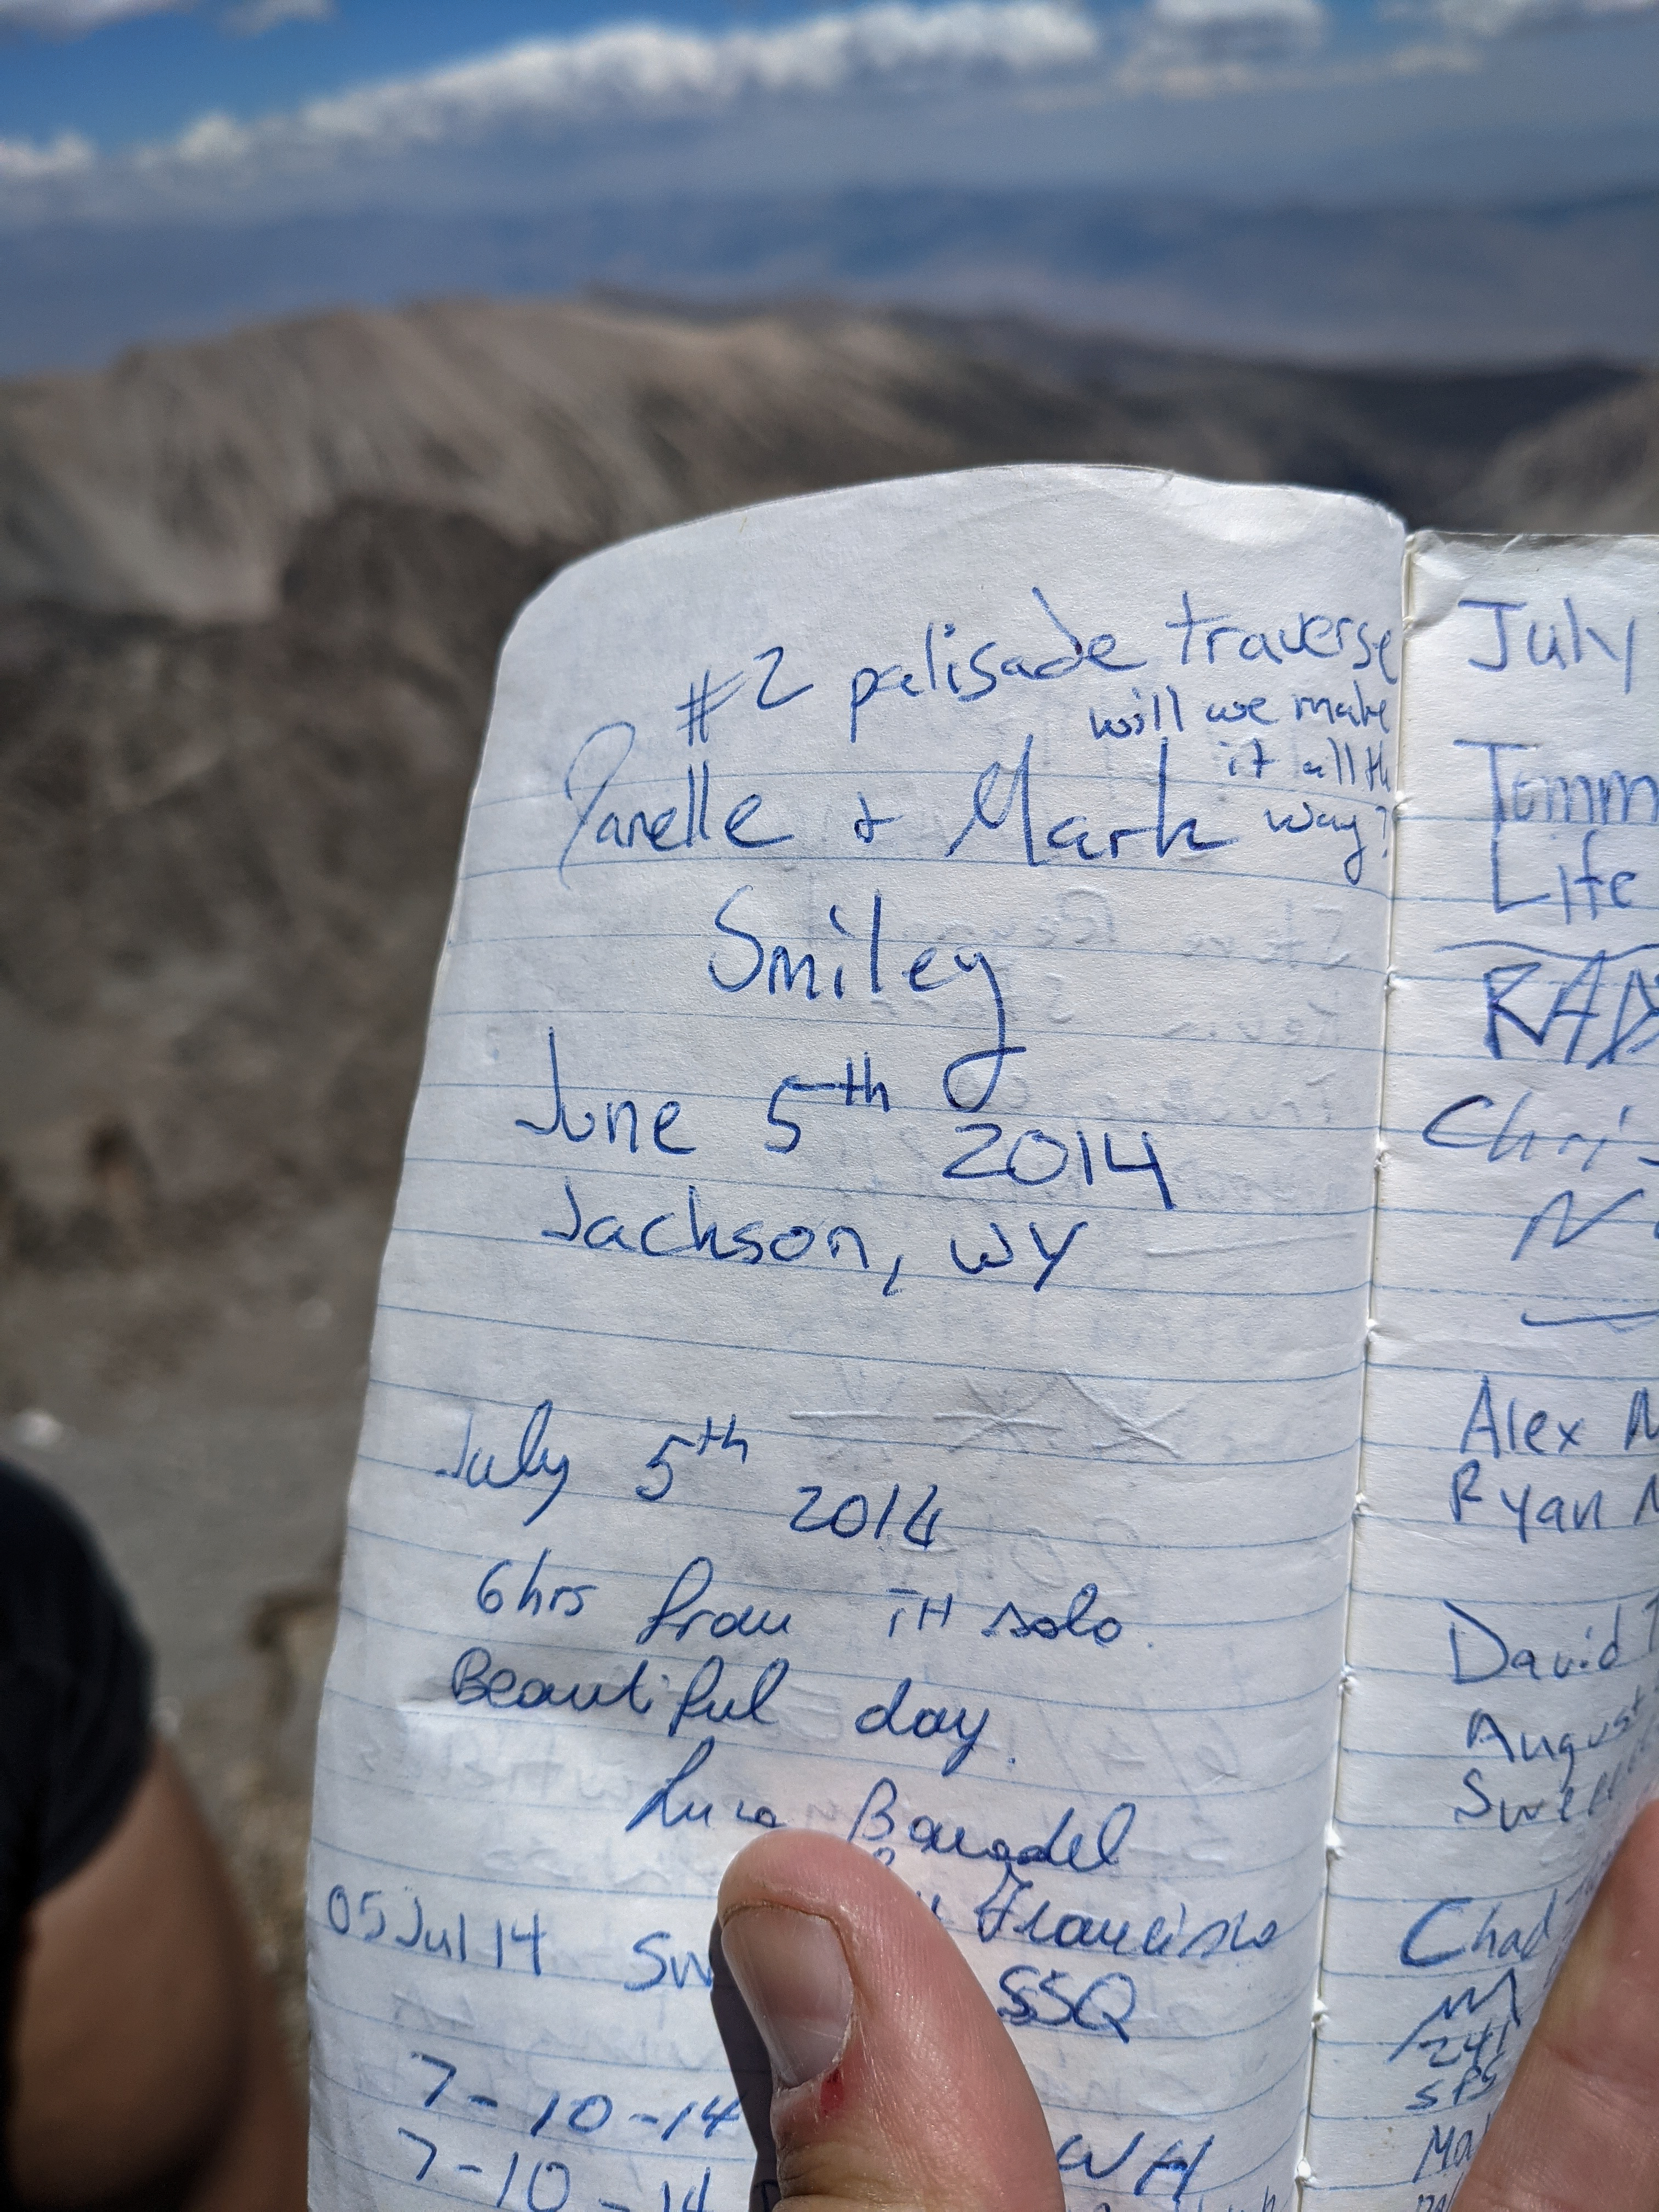 #2 palisade traverse
will we make
it all th
way?
Janelle & Mark
Smiley
June 5th 2014
Jackson, WY
July 5th 2014
6hrs from TH solo.
Beautiful day.
Luca
Francisco
05 Jul 14 Sw SSQ
7-10-14 WH
7-10-14
July
Tomm
Life
RAD
Chris
Alex M
Ryan M
David
August
Swell
Chad
241
SPS
Ma